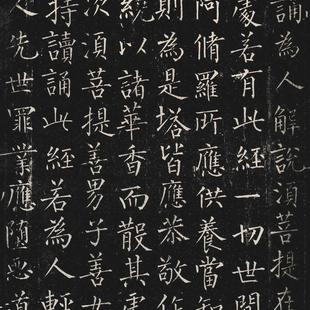 誦為人解說須菩提在
處若有此經一切世間
阿脩羅所應供養當知
則為是塔皆應恭敬作
繞以諸華香而散其處
次須菩提善男子善女
持讀誦此經若為人輕
人先世罪業應墮惡道